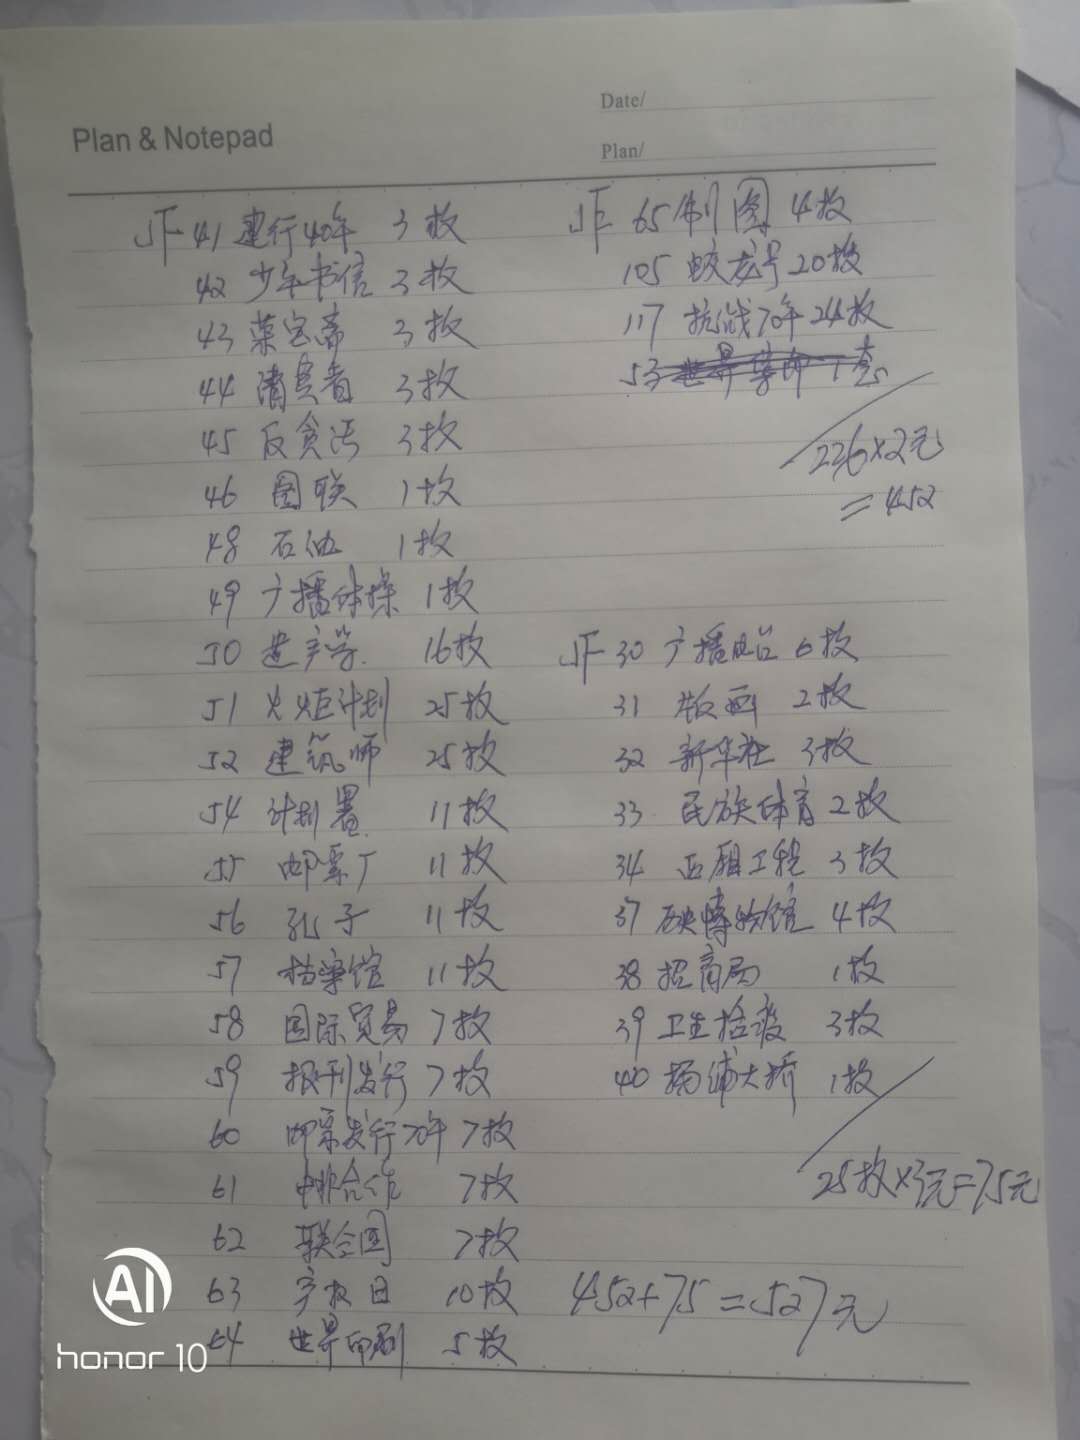 Plan & Notepad
Date/
Plan/
JF 41 建行40年 3枚
42 少年书信 3枚
43 荣宝斋 3枚
44 消费者 3枚
45 反贪污 3枚
46 国联 1枚
48 石油 1枚
49 广播体操 1枚
50 遗产学 16枚
51 火炬计划 25枚
52 建筑师 25枚
54 计划署 11枚
55 邮票厂 11枚
56 孔子 11枚
57 档案馆 11枚
58 国际贸易 7枚
59 报刊发行 7枚
60 邮票发行70年 7枚
61 中非合作 7枚
62 联合国 7枚
63 产权日 10枚
64 世界印刷 5枚
JF 65 制图 4枚
105 蛟龙号 20枚
117 抗战70年 24枚
53 世界集邮 1套
226×2元
=452
JF 30 广播电台 6枚
31 版画 2枚
32 新华社 3枚
33 民族体育 2枚
34 西厢工程 3枚
37 博物馆 4枚
38 招商局 1枚
39 卫生检疫 3枚
40 杨浦大桥 1枚
25枚×3元=75元
452+75=527元
AI
honor 10